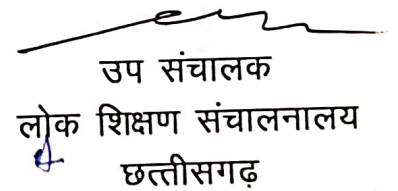 उप संचालक
लोक शिक्षण संचालनालय
छत्तीसगढ़